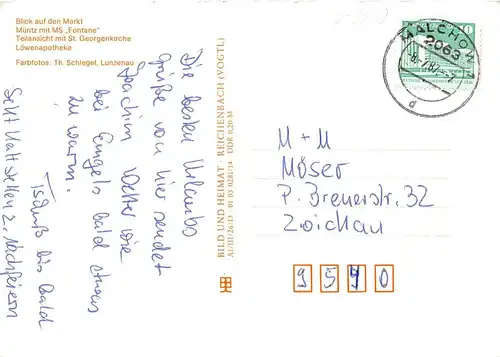 Blick auf den Markt
Müritz mit MS „Fontane“
Teilansicht mit St. Georgenkirche
Löwenapotheke
Farbfotos: Th. Schlegel, Lunzenau
Die besten Urlaubs
grüße von hier sendet
Joachim. Wetter wie
bei Engels bald etwas
zu warm.
Tschüß bis bald
Sekt kalt stellen z. Nachfeiern
BILD UND HEIMAT · REICHENBACH (VOGTL)
A1/III/26/13 01 03 0281/14 DDR 0,20 M
MALCHOW
2063
-8.-7.87
d
10
M + M
Möser
P. Breuerstr. 32
Zwickau
9540